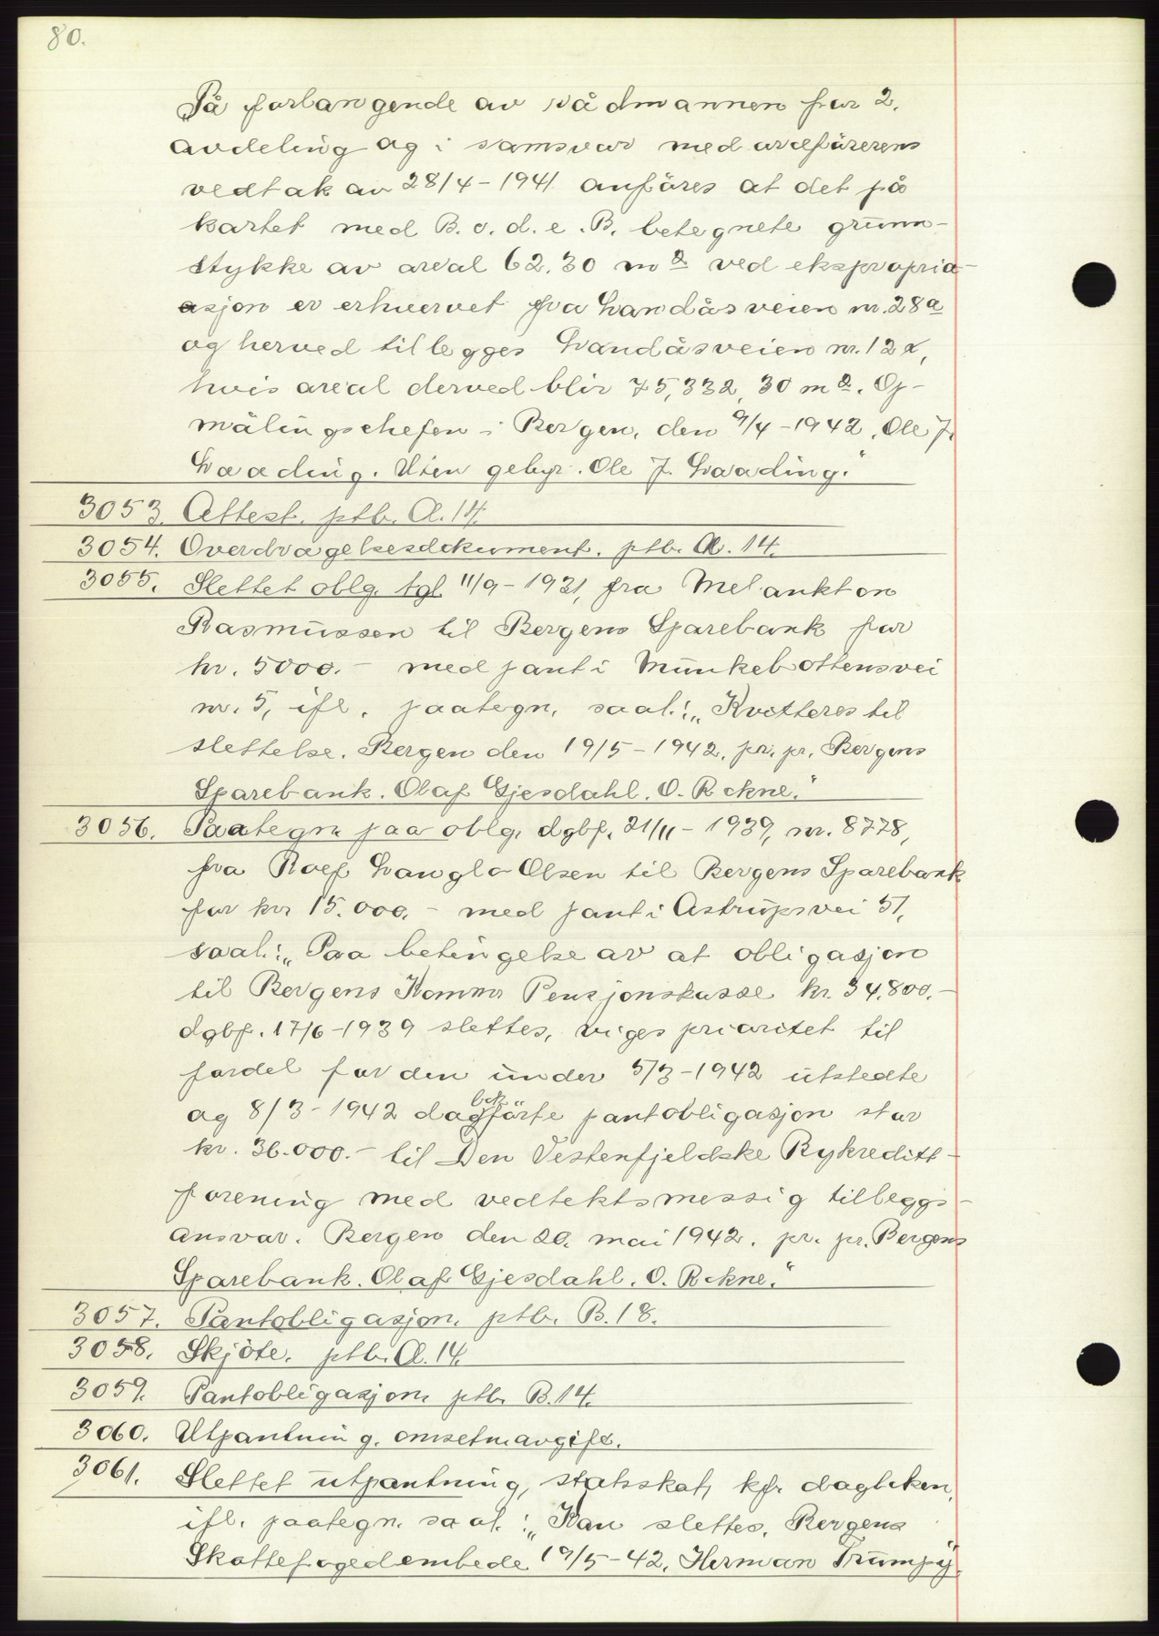 80.
På forlangende av rådmannen for 2.
avdeling og i samsvar med ordförerens
vedtak av 28/4-1941 anföres at det på
kartet med B. c. d. e. B. betegnete grunn-
stykke av areal 62.30 m2 ved ekspropria-
asjon er erhvervet fra Landåsveien nr. 28a
og herved tillegges Landåsveien nr. 12
hvis areal derved blir 75,332,30 m2. Op-
målingschefen i Bergen, den 9/4-1942. Ole J.
Laading. Uten gebyr. Ole J. Laading."
3053. Attest, ptb. A. 14.
3054. Overdragelsesdokument. ptb. A. 14.
3055. Slettet oblg. tgl. 11/9-1931, fra Melankton
Rasmussen til Bergens Sparebank for
kr. 5000.- med pant i Munkebottensvei
nr. 5, ifl. paategn. saal.: „Kvitteres til
slettelse. Bergen den 19/5-1942. pr. pr. Bergens
Sparebank. Olaf Gjesdahl. O. Rekne."
3056. Paategn. paa oblg. dgbf. 21/11-1939, nr. 8778,
fra Rolf Langlo Olsen til Bergens Sparebank
for kr. 15.000.- med pant i Astrupsvei 51,
saal.: „Paa betingelse av at obligasjon
til Bergens Komm. Pensjonskasse kr. 34.800.-
dgbf. 17/6-1939 slettes, viges prioritet til
fordel for den under 5/3-1942 utstedte
og 8/3-1942 dagbokförte pantobligasjon stor
kr. 36.000.- til Den Vestenfjeldske Bykreditt-
forening med vedtektsmessig tilleggs-
ansvar. Bergen den 20. mai 1942. pr. pr. Bergens
Sparebank. Olaf Gjesdahl. O. Rekne."
3057. Pantobligasjon, ptb. B. 18.
3058. Skjöte. ptb. A. 14.
3059. Pantobligasjon, ptb. B. 14.
3060. Utpantning, omsetn.avgift.
3061. Slettet utpantning, statsskatt, kfr. dagboken,
ifl. paategn. saal.: „Kan slettes. Bergens
Skattefogedembede 19/5-42. Herman Trumpy"